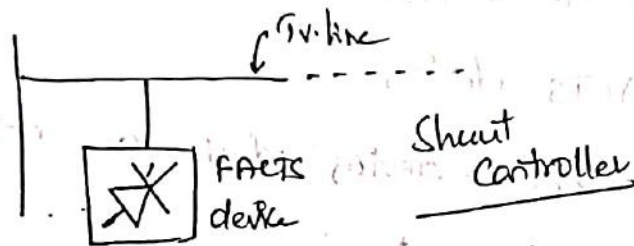 Tr. line
FACTS
device
Shunt
Controller